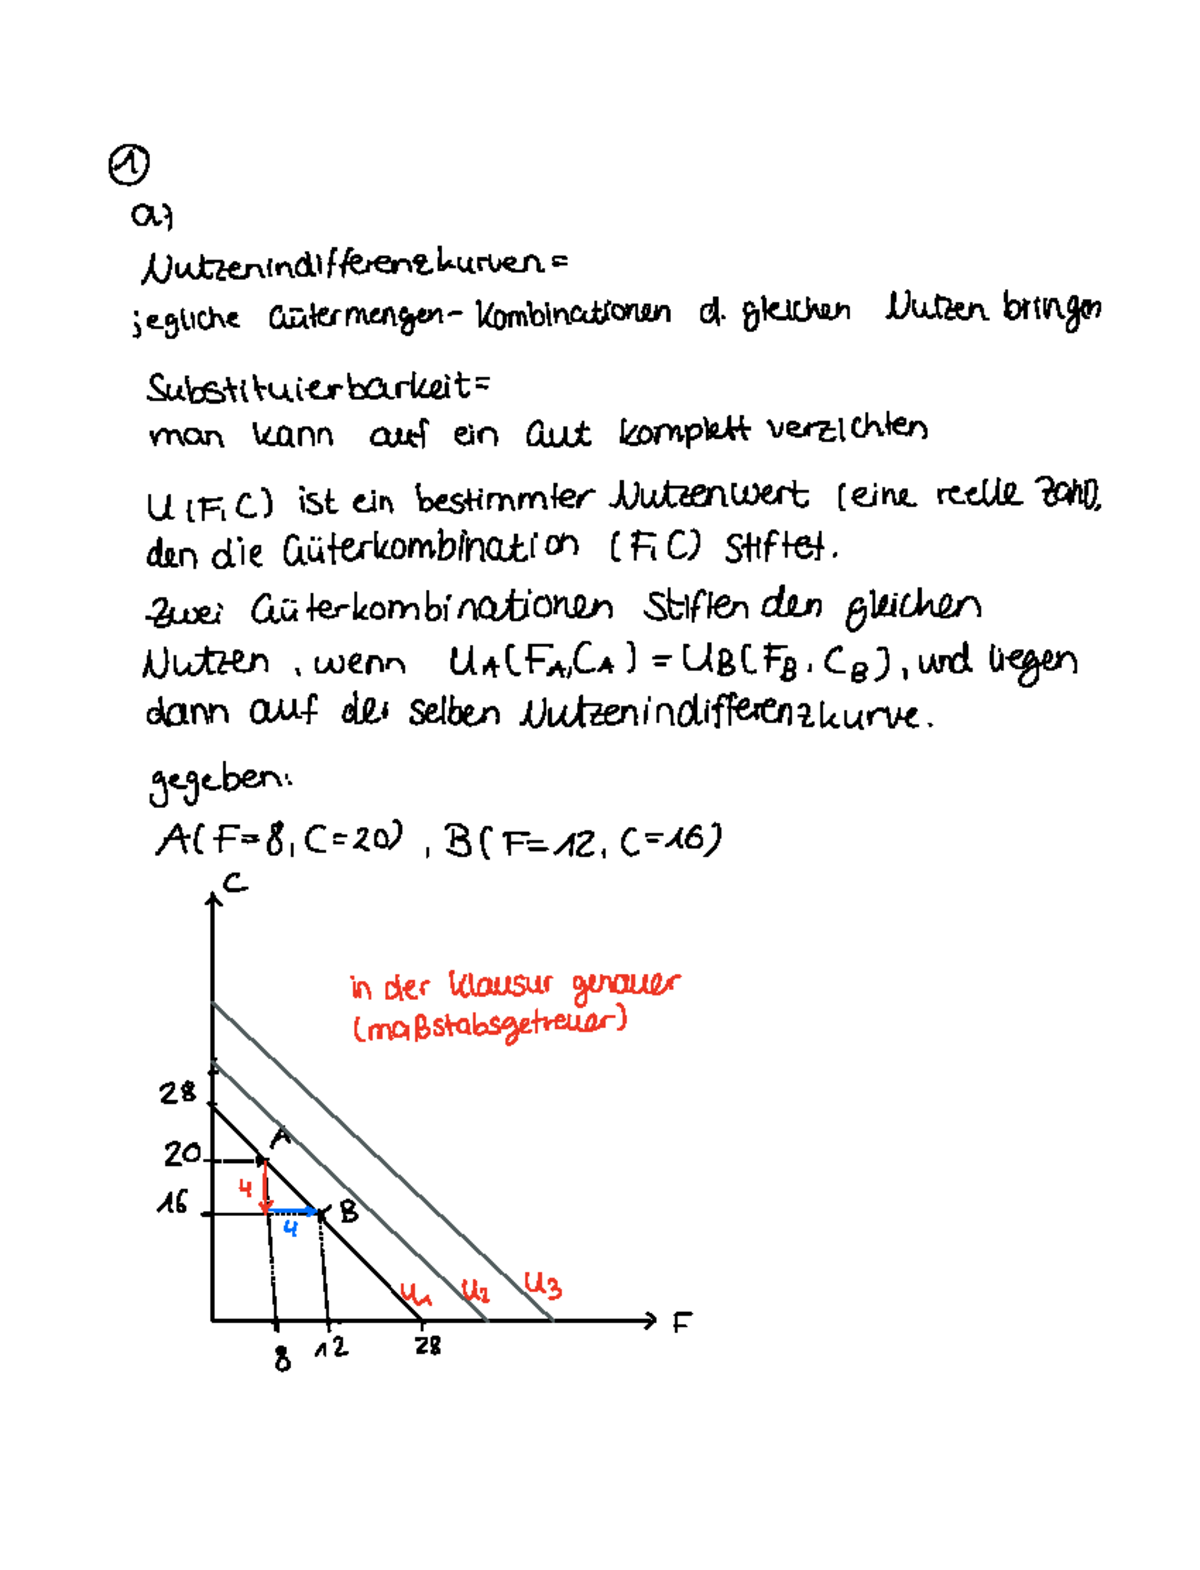 1
a)
Nutzenindifferenzkurven =
jegliche Gütermengen- Kombinationen d. gleichen Nutzen bringen
Substituierbarkeit =
man kann auf ein Gut komplett verzichten
U (F, C) ist ein bestimmter Nutzenwert (eine reelle Zahl),
den die Güterkombination (F, C) stiftet.
Zwei Güterkombinationen stiften den gleichen
Nutzen, wenn UA(FA,CA) = UB(FB, CB), und liegen
dann auf der selben Nutzenindifferenzkurve.
gegeben:
A( F=8, C=20) , B( F=12, C=16)
C
in der Klausur genauer
(maßstabsgetreuer)
28
A
20
4
16
B
4
U1 U2 U3
F
8 12 28